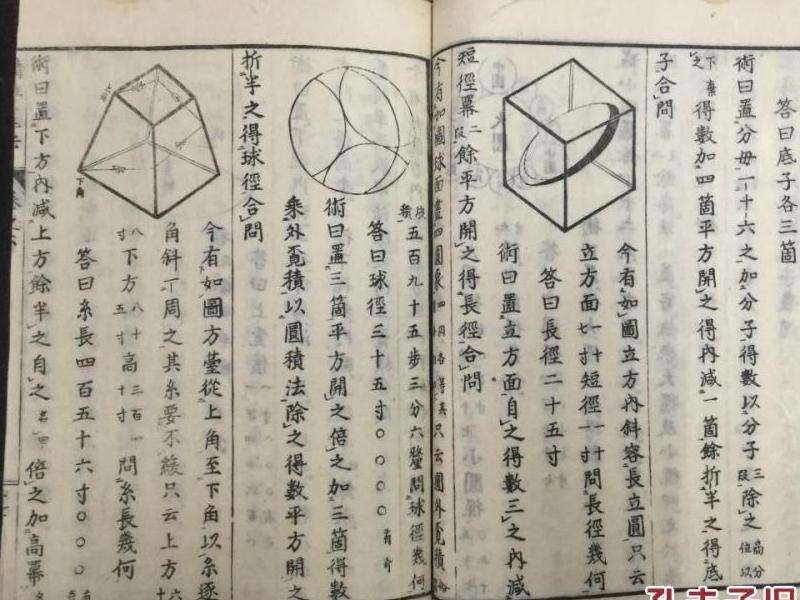 答曰底子各三箇
術曰置分母一十六之加分子得數以分子三段除之
下棄之得數加四箇平方開之得內減一箇餘折半之得底
子合問
今有如圖立方內斜容長立圓只云
立方面短徑問長徑幾何
答曰長徑二十五寸
術曰置立方面自之得數三之內減
短徑冪二段餘平方開之得長徑合問
今有如圖球面畫四圓只云圓外覓積
五百九十五步三分六釐問球徑幾何
答曰球徑三十五寸〇〇〇〇有奇
術曰置三箇平方開之倍之加三箇得數
乘外覓積以圓積法除之得數平方開
折半之得球徑合問
今有如圖方臺從上角至下角以糸逐
角斜周之其糸要不緩只云上方
下方高問糸長幾何
答曰糸長四百五十六寸〇〇〇有
術曰置下方內減上方餘半之自之名甲倍之加高冪
下角